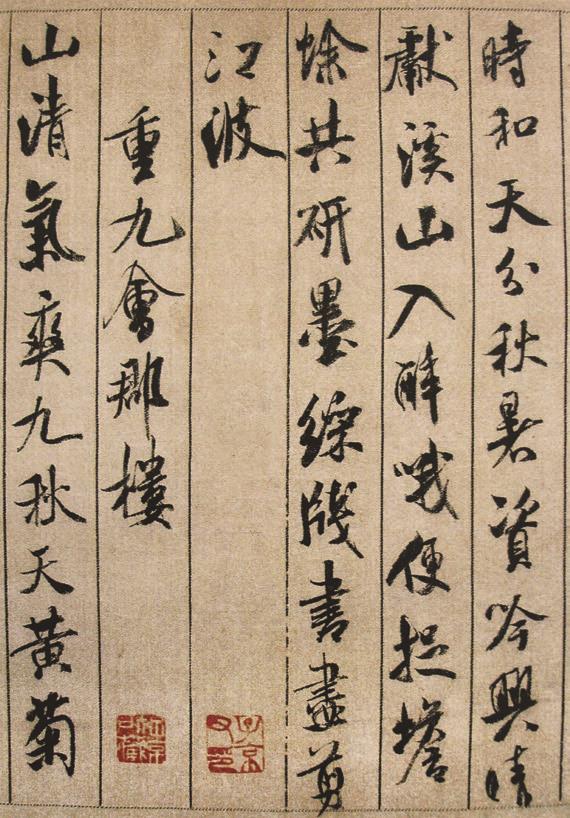 時和天分秋暑資吟興晴
獻溪山入醉哦便捉蟾
蜍共研墨綵牋書盡剪
江波
重九會郡樓
山清氣爽九秋天黃菊